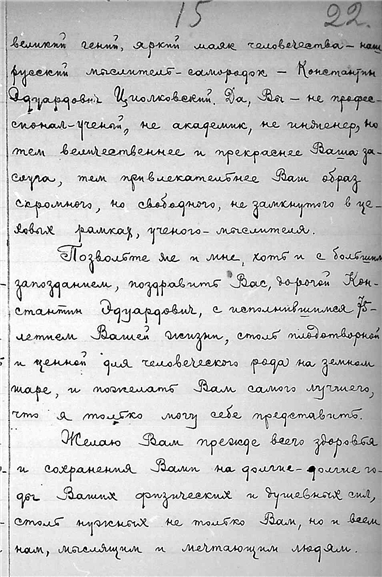 15 22.
великий гений, яркий маяк человечества – наш
русский мыслитель-самородок – Константин
Эдуардович Циолковский. Да, Вы – не профес-
сионал-ученый, не академик, не инженер, но
тем величественнее и прекраснее Ваша за-
слуга, тем привлекательнее Ваш образ
скромного, но свободного, не замкнутого в це-
ховых рамках, ученого-мыслителя.
Позвольте же и мне, хоть и с большим
запозданием, поздравить Вас, дорогой Кон-
стантин Эдуардович, с исполнившимся 75-
летием Вашей жизни, столь плодотворной
и ценной для человеческого рода на земном
шаре, и пожелать Вам самого лучшего,
что я только могу себе представить.
Желаю Вам прежде всего здоровья
и сохранения Вами на долгие-долгие го-
ды Ваших физических и душевных сил,
столь нужных не только Вам, но и всем
нам, мыслящим и мечтающим людям.